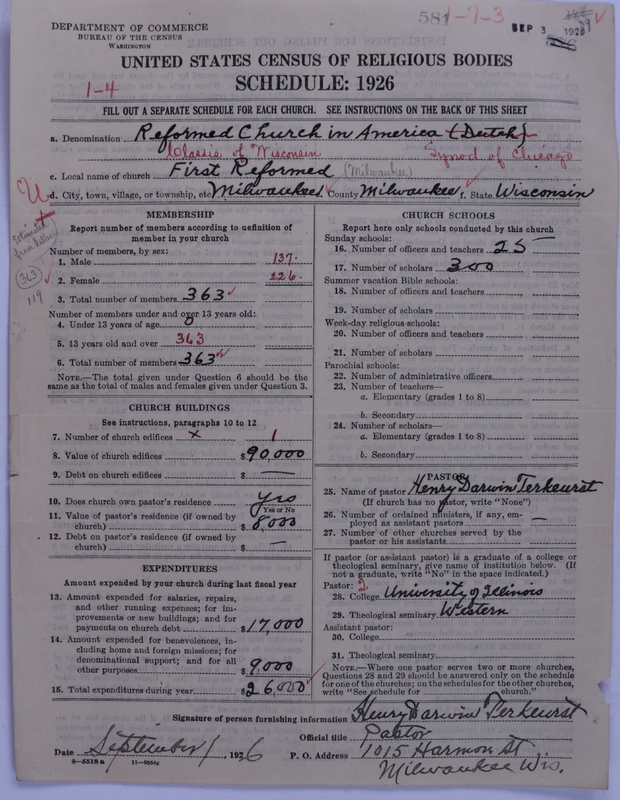 DEPARTMENT OF COMMERCE
BUREAU OF THE CENSUS
WASHINGTON
581
1-7-3
SEP 3 1926
UNITED STATES CENSUS OF RELIGIOUS BODIES
SCHEDULE: 1926
1-4
FILL OUT A SEPARATE SCHEDULE FOR EACH CHURCH. SEE INSTRUCTIONS ON THE BACK OF THIS SHEET
a. Denomination Reformed Church in America (Dutch)
Classis of Wisconsin Synod of Chicago
c. Local name of church First Reformed (Milwaukee)
d. City, town, village, or township, etc. Milwaukee e. County Milwaukee f. State Wisconsin
MEMBERSHIP
Report number of members according to definition of
member in your church
Number of members, by sex:
1. Male 137.
2. Female 226.
3. Total number of members 363
Number of members under and over 13 years old:
4. Under 13 years of age 0
5. 13 years old and over 363
6. Total number of members 363
NOTE.—The total given under Question 6 should be the
same as the total of males and females given under Question 3.
Estimated
from letter
363
119
CHURCH BUILDINGS
See instructions, paragraphs 10 to 12
7. Number of church edifices x 1
8. Value of church edifices $90,000
9. Debt on church edifices $ —
10. Does church own pastor's residence yes
Yes or No
11. Value of pastor's residence (if owned by
church) $8000
12. Debt on pastor's residence (if owned by
church) $ —
EXPENDITURES
Amount expended by your church during last fiscal year
13. Amount expended for salaries, repairs,
and other running expenses; for im-
provements or new buildings; and for
payments on church debt $17,000
14. Amount expended for benevolences, in-
cluding home and foreign missions; for
denominational support; and for all
other purposes $9000
15. Total expenditures during year $26,000
CHURCH SCHOOLS
Report here only schools conducted by this church
Sunday schools:
16. Number of officers and teachers 25
17. Number of scholars 300
Summer vacation Bible schools:
18. Number of officers and teachers
19. Number of scholars
Week-day religious schools:
20. Number of officers and teachers
21. Number of scholars
Parochial schools:
22. Number of administrative officers
23. Number of teachers—
a. Elementary (grades 1 to 8)
b. Secondary
24. Number of scholars—
a. Elementary (grades 1 to 8)
b. Secondary
PASTOR
25. Name of pastor Henry Darwin Terkeurst
(If church has no pastor, write "None")
26. Number of ordained ministers, if any, em-
ployed as assistant pastors —
27. Number of other churches served by the
pastor or his assistants —
If pastor (or assistant pastor) is a graduate of a college or
theological seminary, give name of institution below. (If
not a graduate, write "No" in the space indicated.)
Pastor: 2
28. College University of Illinois
29. Theological seminary Western
Assistant pastor:
30. College
31. Theological seminary
NOTE.—Where one pastor serves two or more churches,
Questions 28 and 29 should be answered only on the schedule
for one of the churches; on the schedules for the other churches,
write "See schedule for church."
Signature of person furnishing information Henry Darwin Terkeurst
Official title Pastor
Date September 1, 1926 P. O. Address 1015 Harmon St.
8-5518 a 11-9054a Milwaukee Wis.